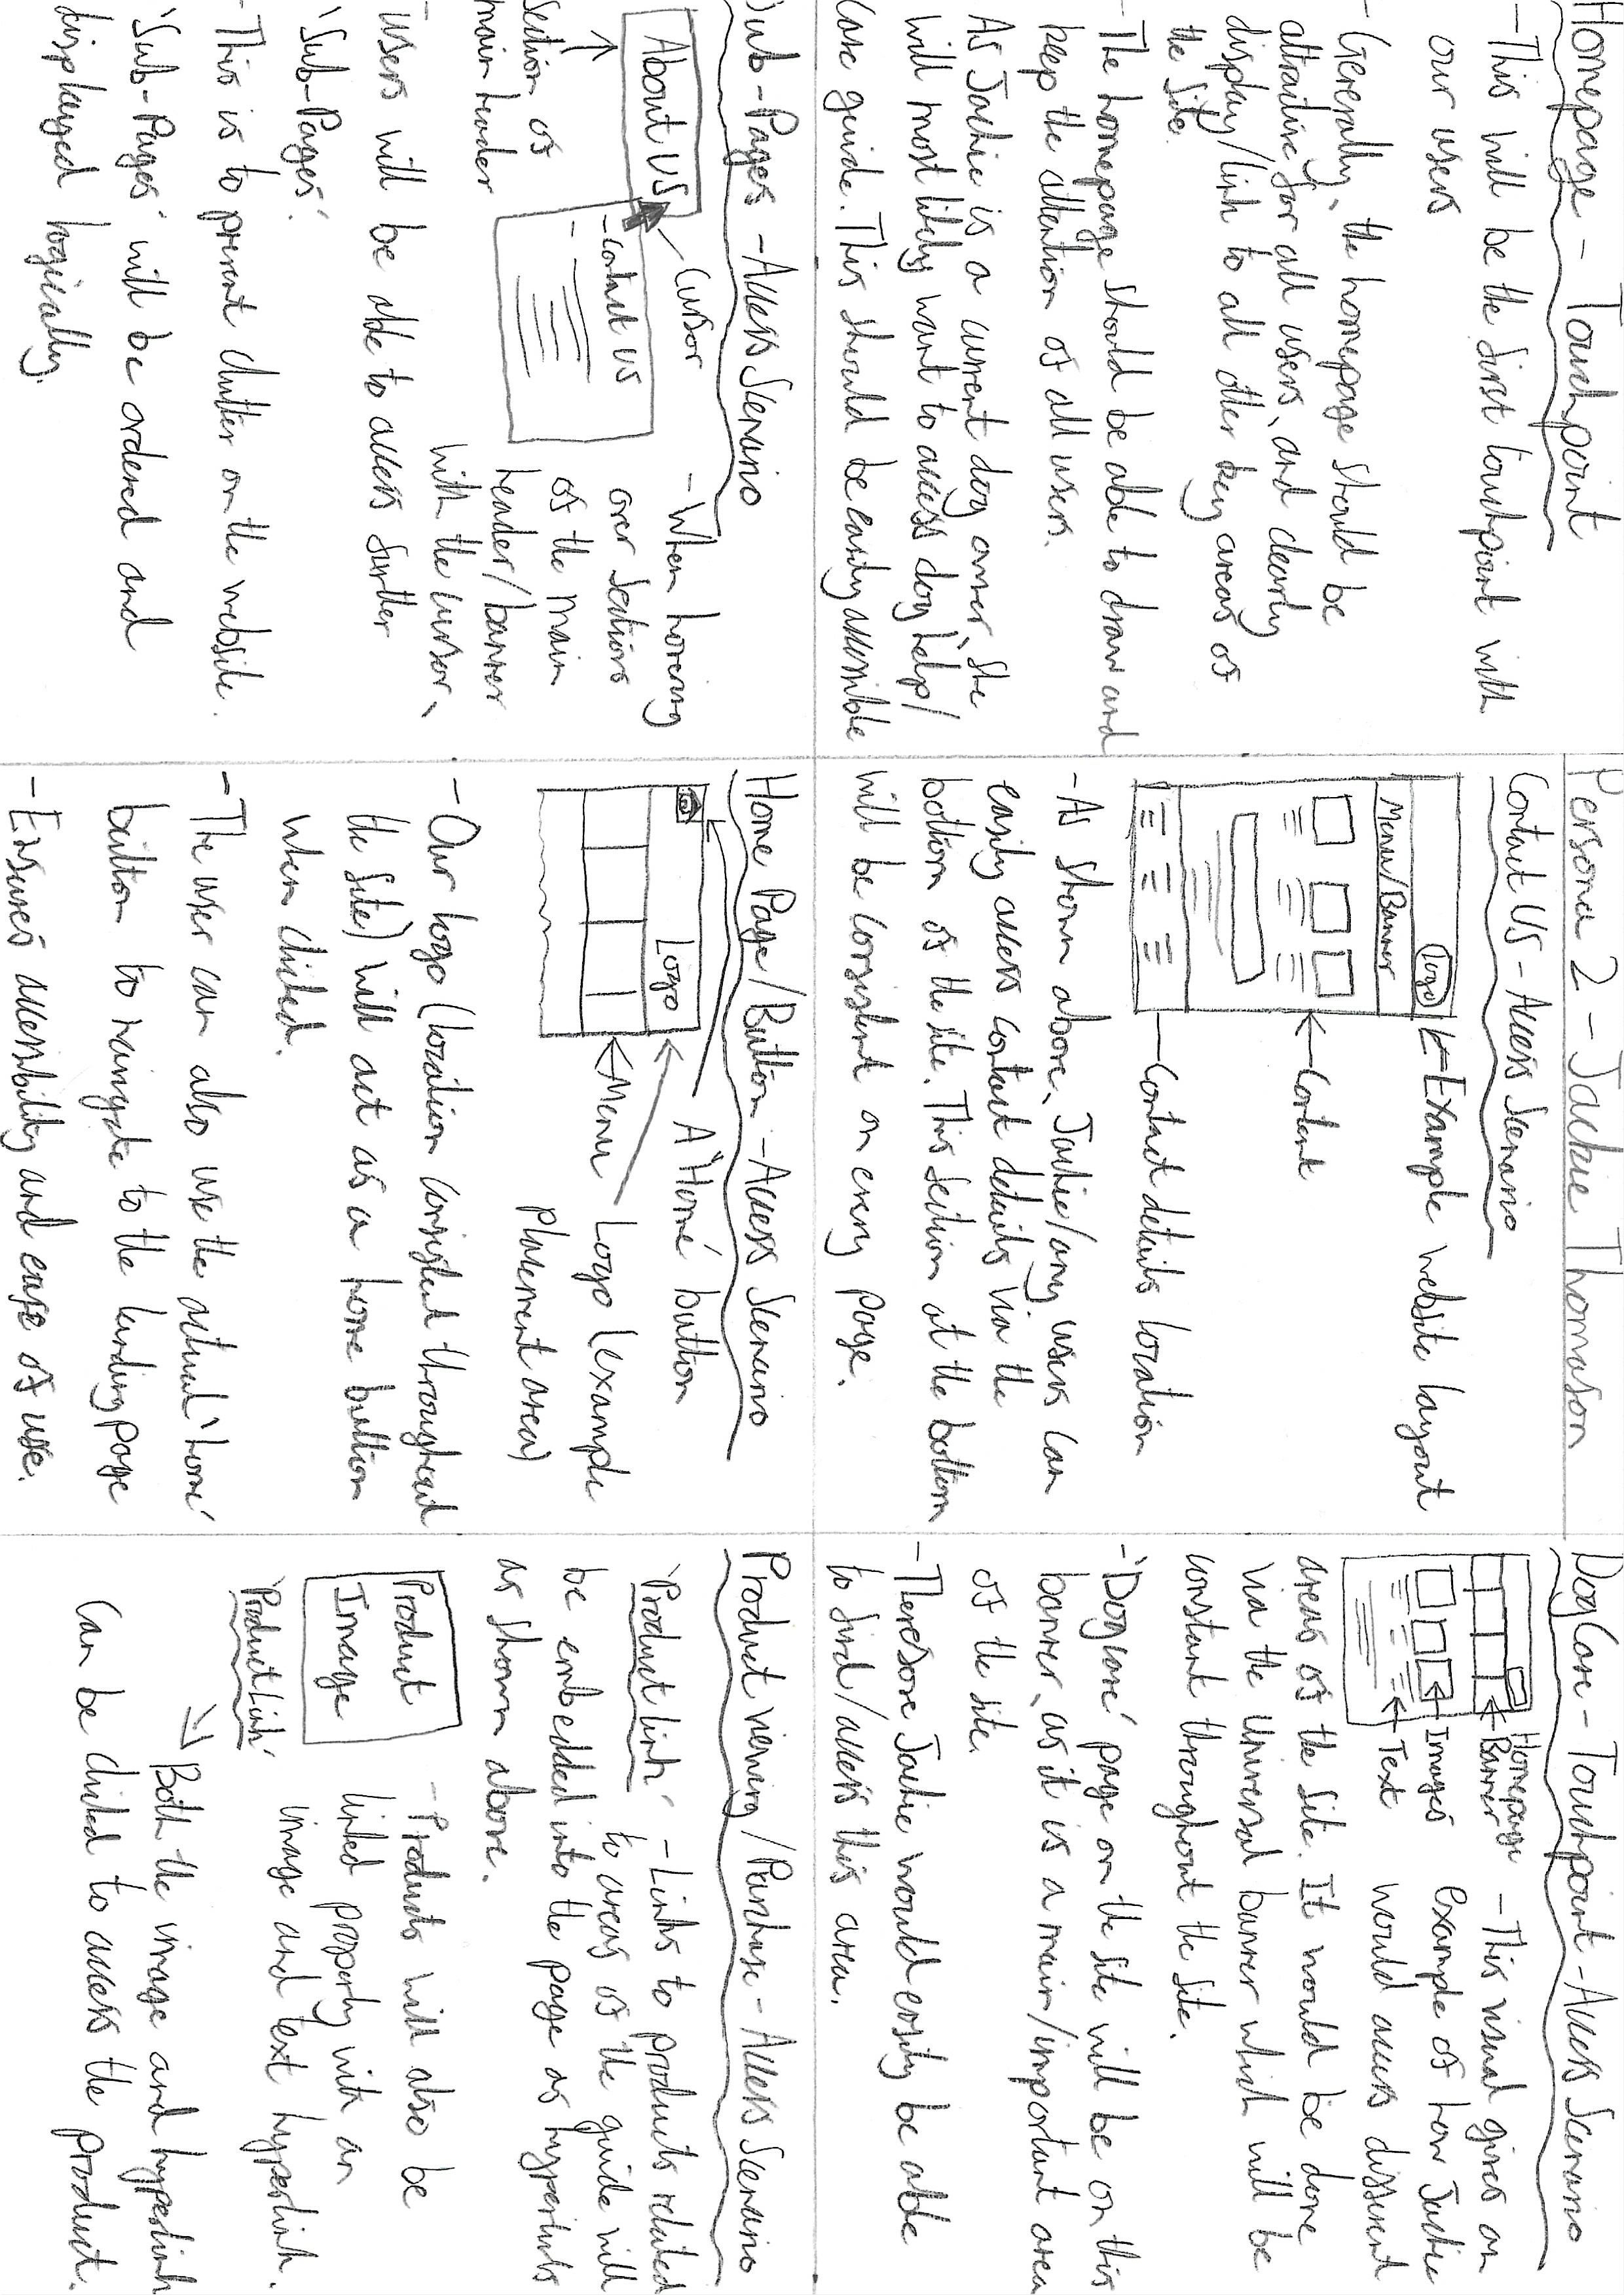 Homepage - Touchpoint
- This will be the first touchpoint with
our users
- Generally, the homepage should be
attractive for all users, and clearly
display/link to all other key areas of
the site.
- The homepage should be able to draw and
keep the attention of all users.
As Jackie is a current dog owner, she
will most likely want to access dog help/
care guide. This should be easily accessible
Persona 2 - Jackie Thomason
Contact Us - Access Scenario
Logo
Example website layout
Menu/Banner
Content
Contact details location
- As shown above, Jackie/any users can
easily access contact details via the
bottom of the site. This section at the bottom
will be consistent on every page.
DogCare - Touchpoint - Access Scenario
Homepage
Banner
Images
Text
- This visual gives an
example of how Jackie
would access different
areas of the site. It would be done
via the universal banner which will be
constant throughout the site.
- 'Dogcare' page on the site will be on this
banner, as it is a main/important area
of the site.
- Therefore Jackie would easily be able
to find/access this area.
Sub-Pages - Access Scenario
About Us
Cursor
- Contact Us
Section of
main header
- When hovering
over sections
of the main
header/banner
with the cursor,
users will be able to access further
'Sub-Pages'.
- This is to prevent clutter on the website.
'Sub-Pages' will be ordered and
displayed logically.
Home Page/Button - Access Scenario
A 'Home' button
Logo
Menu
Logo (example
placement area)
- Our logo (location consistent throughout
the site) will act as a home button
when clicked.
- The user can also use the actual 'home'
button to navigate to the landing page
- Ensures accessibility and ease of use.
Product viewing/Purchase - Access Scenario
'Product link'
- Links to products related
to areas of the guide will
be embedded into the page as hyperlinks
as shown above.
Product
Image
'Product Link'
- Products will also be
linked properly with an
image and text hyperlink.
Both the image and hyperlink
can be clicked to access the product.